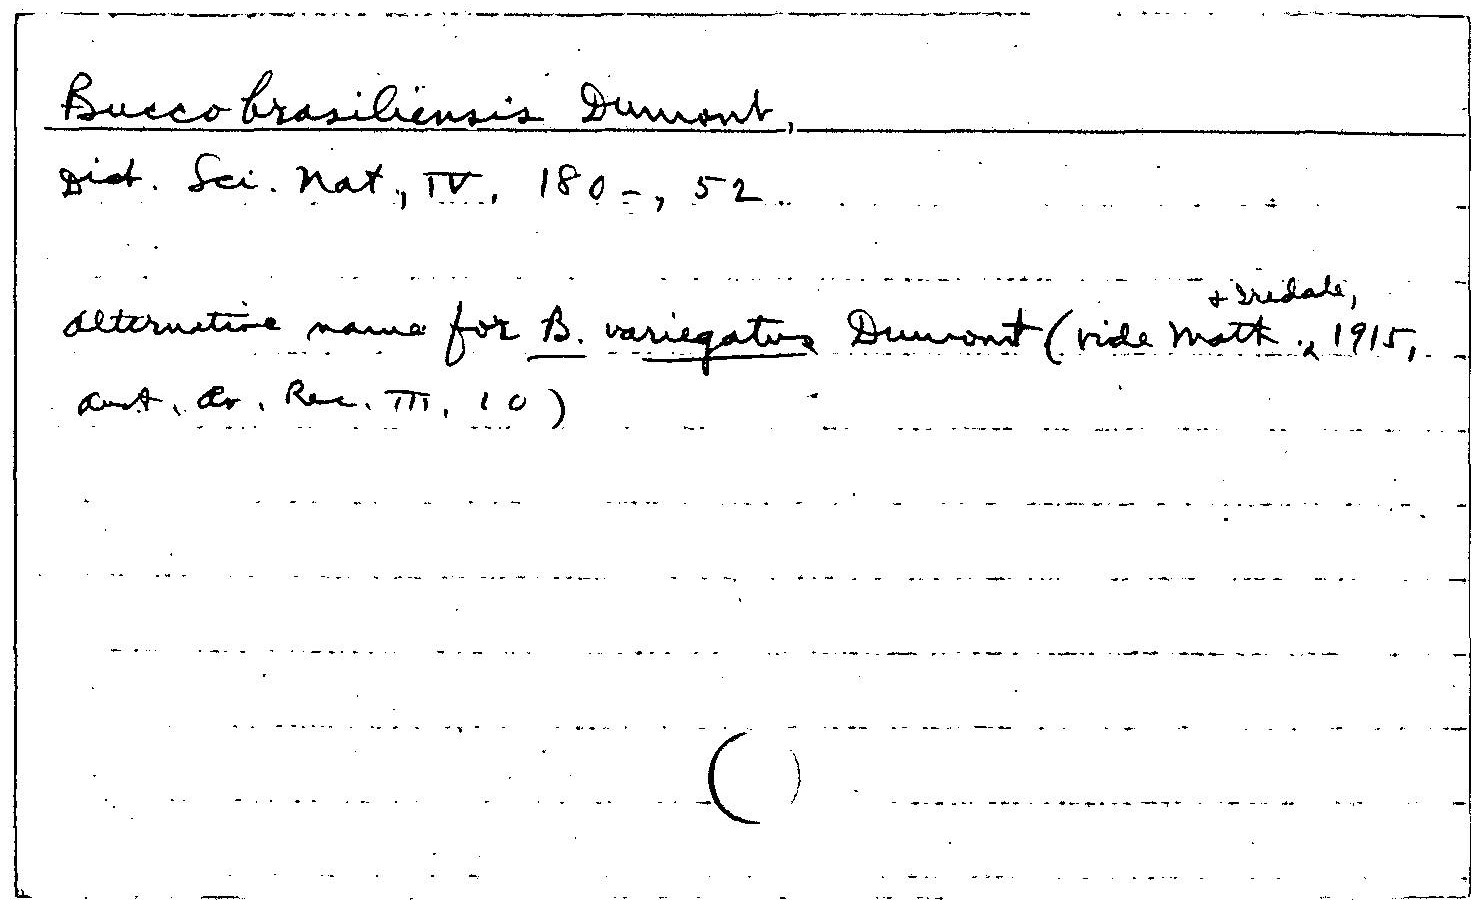 Bucco brasiliensis Dumont,
Dict. Sci. Nat., IV, 180-, 52.
Alternative name for B. variegatus Dumont (vide Math. + Iredale, 1915,
Aust. Av. Rec. III, 10)